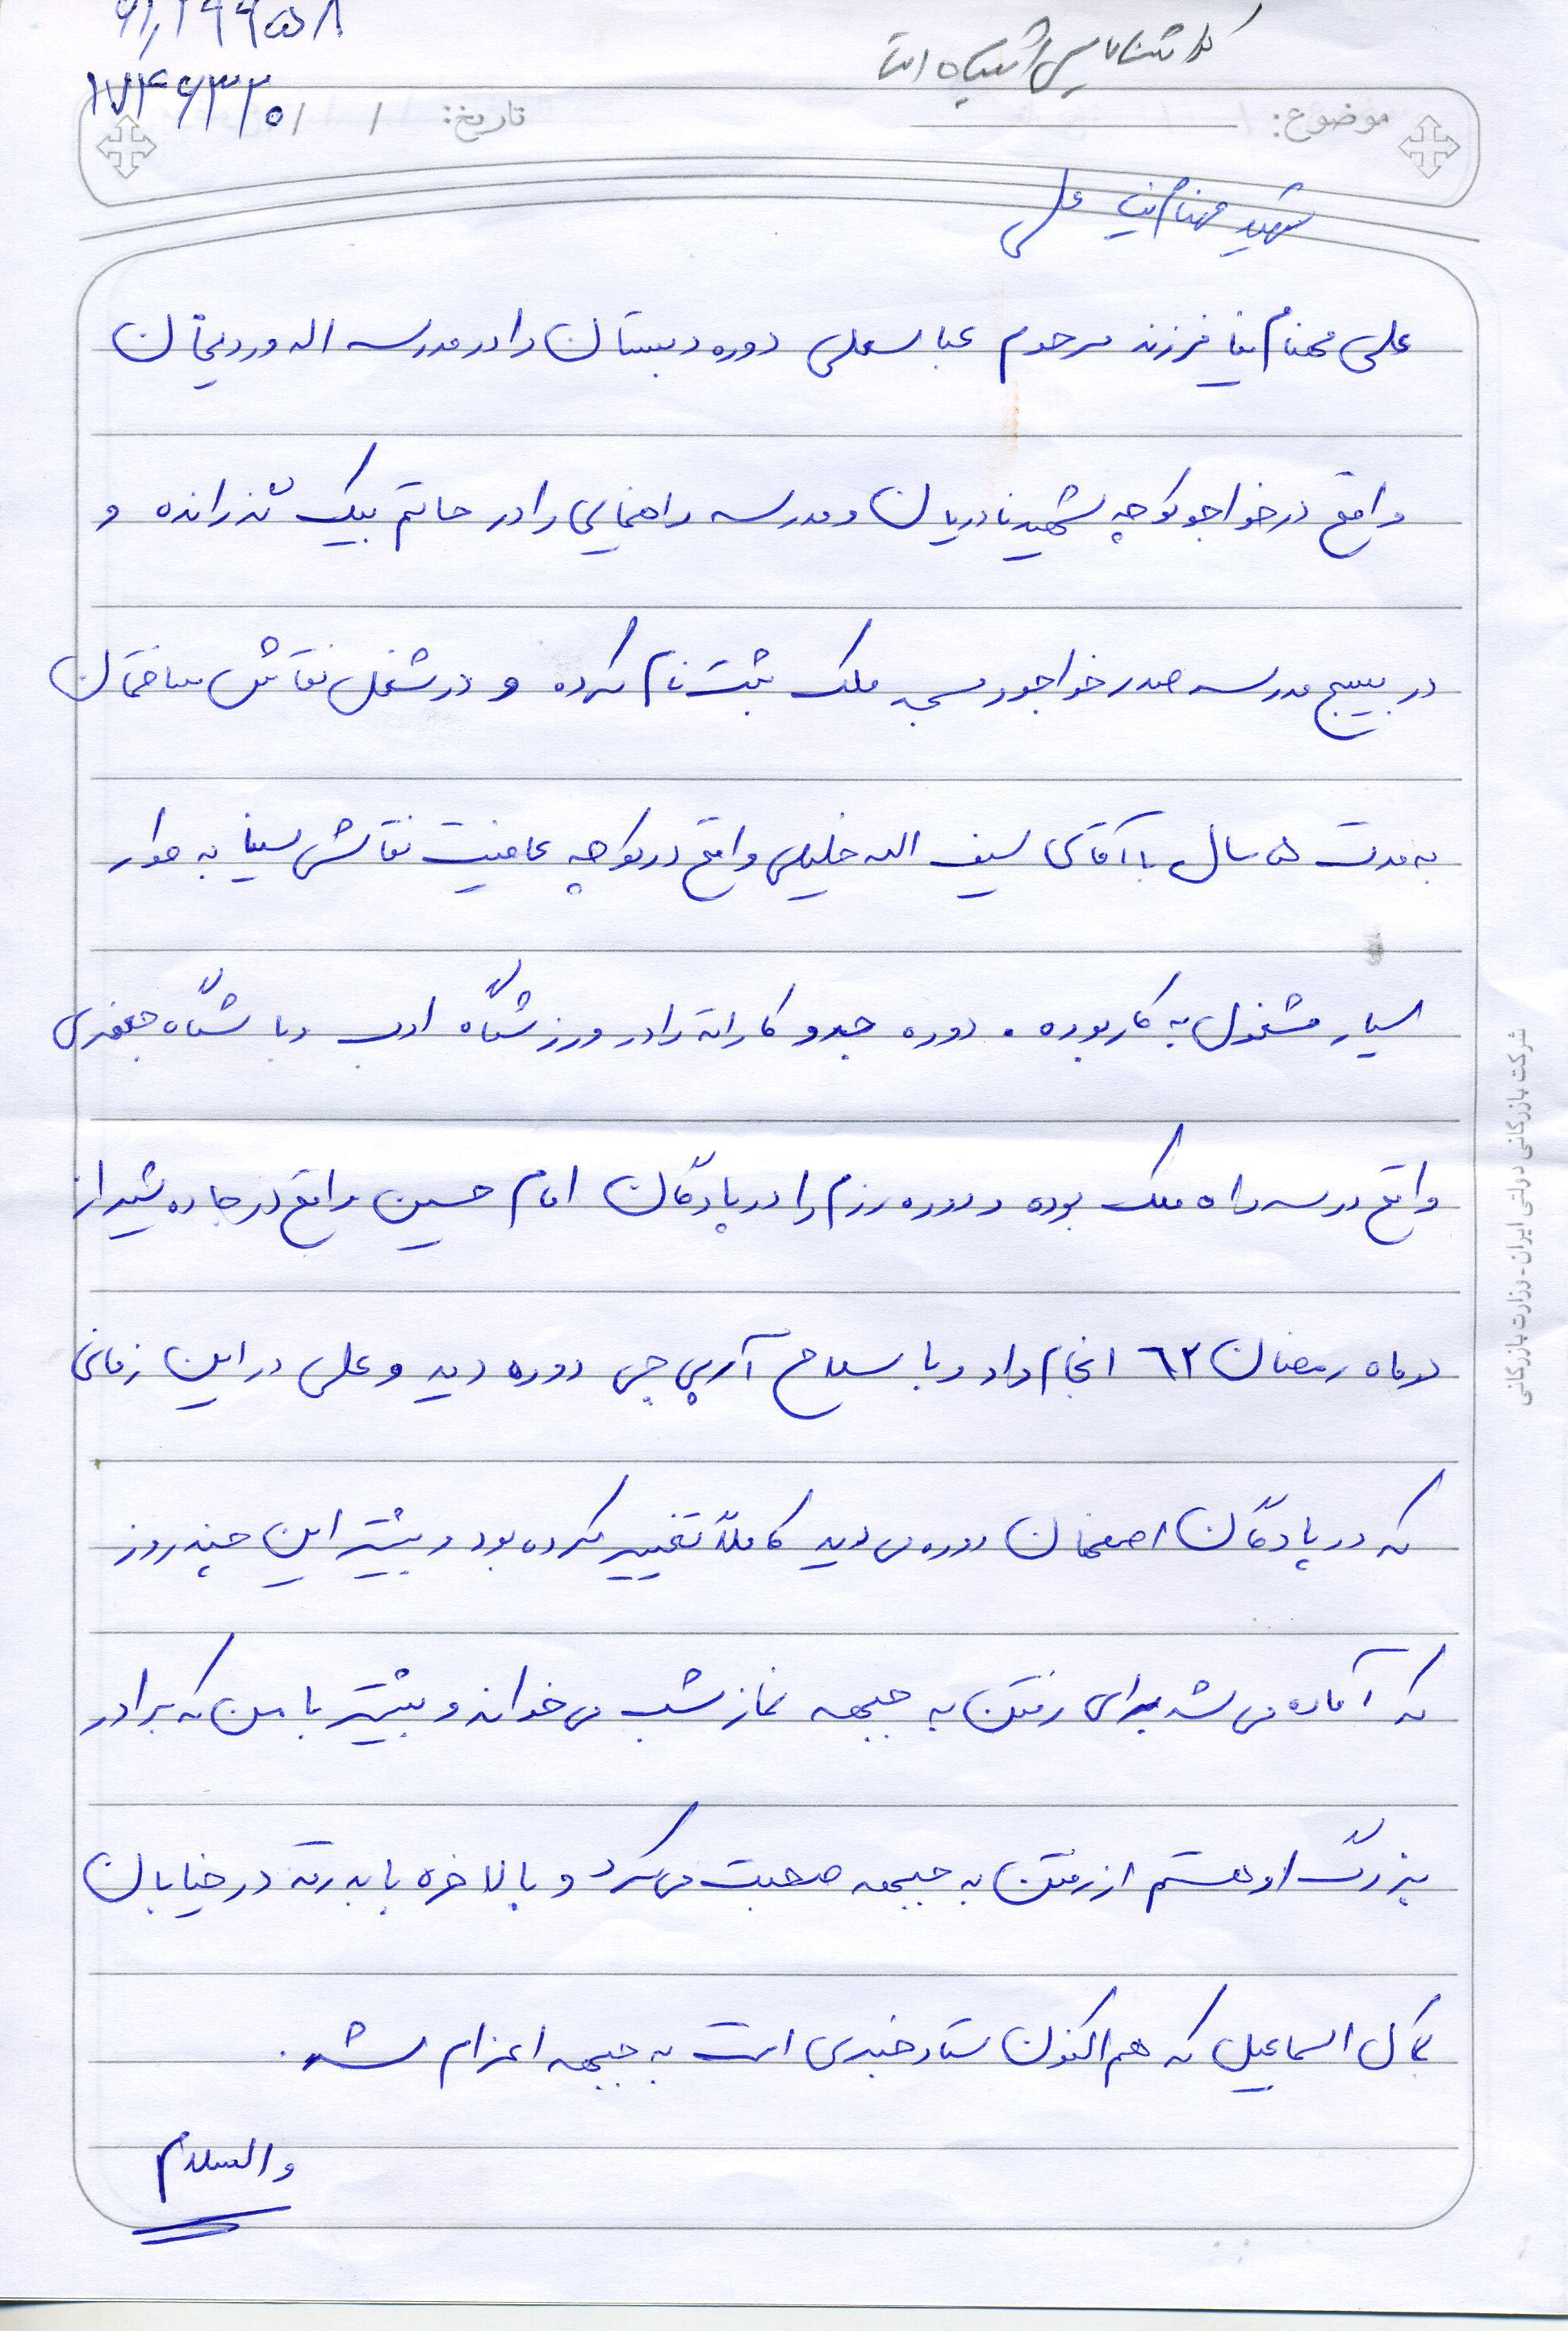 کد شناسایی اشتباه است
۱۷۴۶۳۳۰
موضوع: تاریخ: / /
شهید مهنام نیا علی
علی مهنام نیا فرزند مرحوم عباسعلی دوره دبستان را در مدرسه اله وردیخان
واقع در خواجو کوچه شهید نادریان و مدرسه راهنمایی را در حاتم بیک گذرانده و
در بسیج مدرسه صدر خواجو و مسجد ملک ثبت نام کرده و در شغل نقاشی ساختمان
به مدت ۵ سال با آقای سیف الله خلیلی واقع در کوچه عافیت نقاشی سینا به
بسیار مشغول به کار بوده . دوره جدو کاراته را در ورزشگاه ادب و باشگاه جعفری
واقع در سه راه ملک بوده و دوره رزم را در پادگان امام حسین واقع در جاده شیراز
در ماه رمضان ٦٢ انجام داد و با سلاح آرپی جی دوره دید و علی در این زمانی
که در پادگان اصفهان دوره می دید کاملاً تغییر کرده بود و بیشتر این چند روز
که آماده می شد برای رفتن به جبهه نماز شب می خواند و بیشتر با من که برادر
بزرگ او هستم از رفتن به جبهه صحبت می کرد و بالاخره با بدرقه در خیابان
کمال اسماعیل که هم اکنون ستاد خبری است به جبهه اعزام شد .
والسلام
شرکت بازرگانی دولتی ایران - وزارت بازرگانی